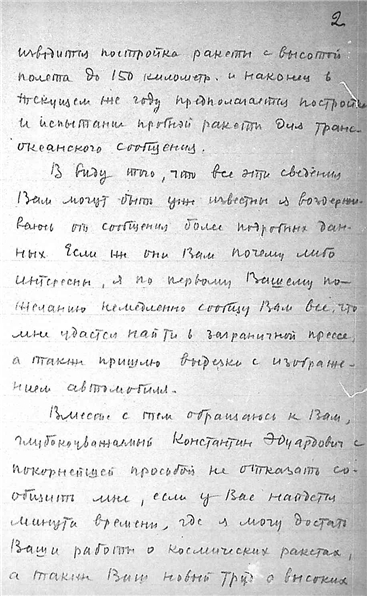 2
изводится постройка ракеты с высотой
полета до 150 километр. и наконец в
текущем же году предполагается построй
и испытание пробной ракеты для транс-
океанского сообщения.
В виду того, что все эти сведения
Вам могут быть уже известны я воздержи-
ваюсь от сообщения более подробных дан-
ных. Если же они Вам почему либо
интересны, я по первому Вашему по-
желанию немедленно сообщу Вам все, что
мне удастся найти в заграничной прессе,
а также пришлю вырезки с изображе-
нием автомобиля.
Вместе с тем обращаюсь к Вам,
глубокоуважаемый Константин Эдуардович с
покорнейшей просьбой не отказать со-
общить мне, если у Вас найдется
минута времени, где я могу достать
Ваши работы о космических ракетах,
а также Ваш новый труд о высоких